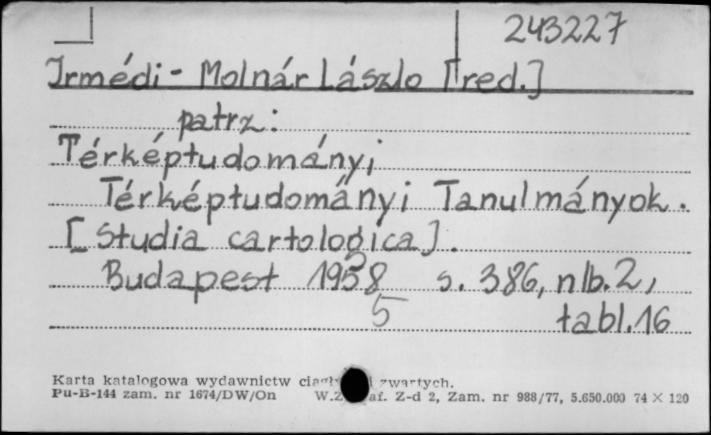 243227
Irmédi-Molnár Lászlo [red.]
patrz:
Térképtudományi
Térképtudományi Tanulmányok.
[Studia cartologica].
Budapest 1958 s. 386, nlb. 2,
5 tabl. 16
Karta katalogowa wydawnictw i zwartych.
Pu-B-144 zam. nr 1674/DW/On W.Z af. Z-d 2, Zam. nr 988/77, 5.650.000 74 × 120